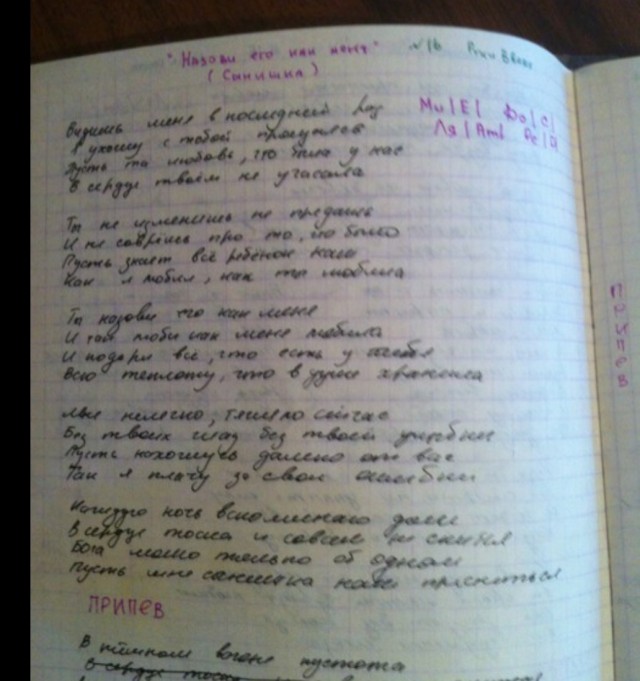 "Назови его как меня" №16 Руки Вверх
(Сынишка)
Ми|E| До|C|
Ля|Am| Ре|D|
Видишь меня в последний раз
Я ухожу с тобой прощуясь
Пусть та любовь, что была у нас
В сердце твоём не угасала
Ты не изменишь не предашь
И не соврёшь про то, что было
Пусть знает всё ребёнок наш
Как я любил, как ты любила
Ты назови его как меня
И так люби как меня любила
И подари всё, что есть у тебя
Всю теплоту, что в душе хранила
Мне нелегко, тяжело сейчас
Без твоих глаз без твоей улыбки
Пусть нахожусь далеко от вас
Так я плачу за свои ошибки
Каждую ночь вспоминаю дом
В сердце тоска и совсем не спится
Бога молю только об одном
Пусть мне сынишка наш присниться
ПРИПЕВ
В тёмном вагоне пустота
В сердце тоска
ПРИПЕВ